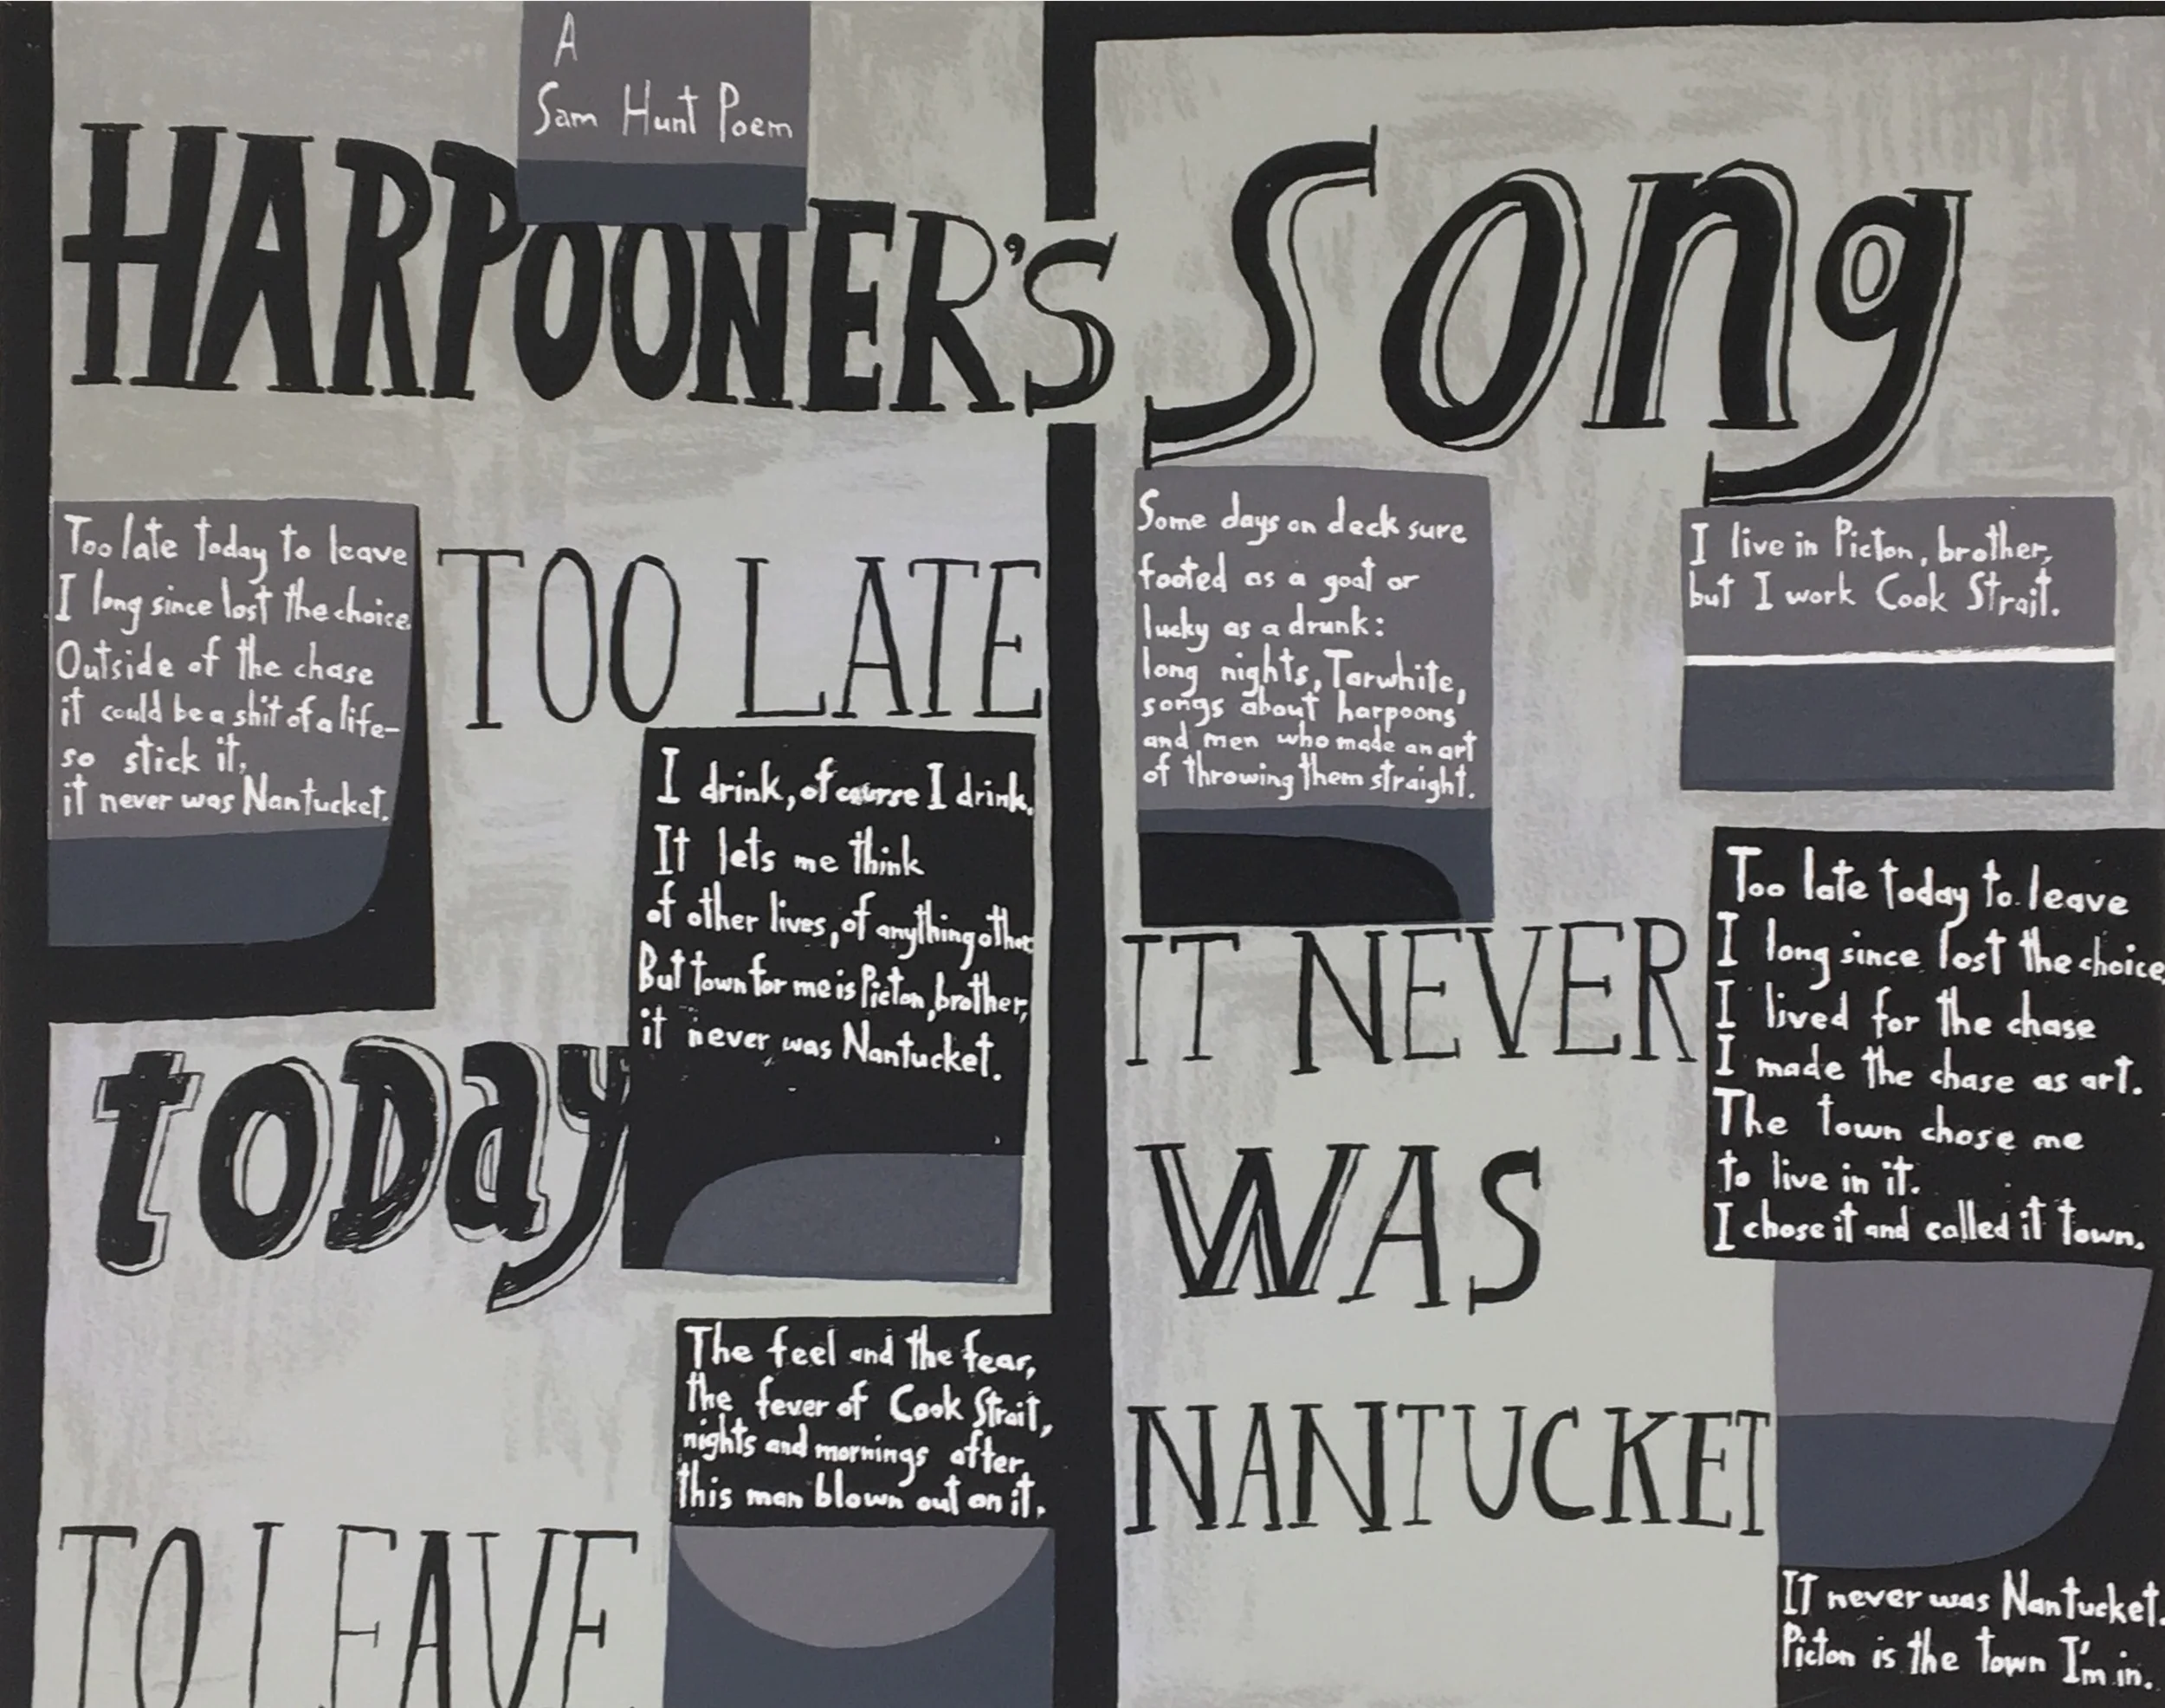 A
Sam Hunt Poem
HARPOONER'S Song
Too late today to leave
I long since lost the choice
Outside of the chase
it could be a shit of a life-
so stick it,
it never was Nantucket.
TOO LATE
I drink, of course I drink.
It lets me think
of other lives, of anything other
But town for me is Picton, brother,
it never was Nantucket.
toDay
The feel and the fear,
the fever of Cook Strait,
nights and mornings after,
this man blown out on it.
TO LEAVE
Some days on deck sure
footed as a goat or
lucky as a drunk:
long nights, Tarwhite,
songs about harpoons
and men who made an art
of throwing them straight.
I live in Picton, brother,
but I work Cook Strait.
IT NEVER
WAS
NANTUCKET
Too late today to leave
I long since lost the choice,
I lived for the chase
I made the chase as art.
The town chose me
to live in it.
I chose it and called it town.
IT never was Nantucket.
Picton is the town I'm in.